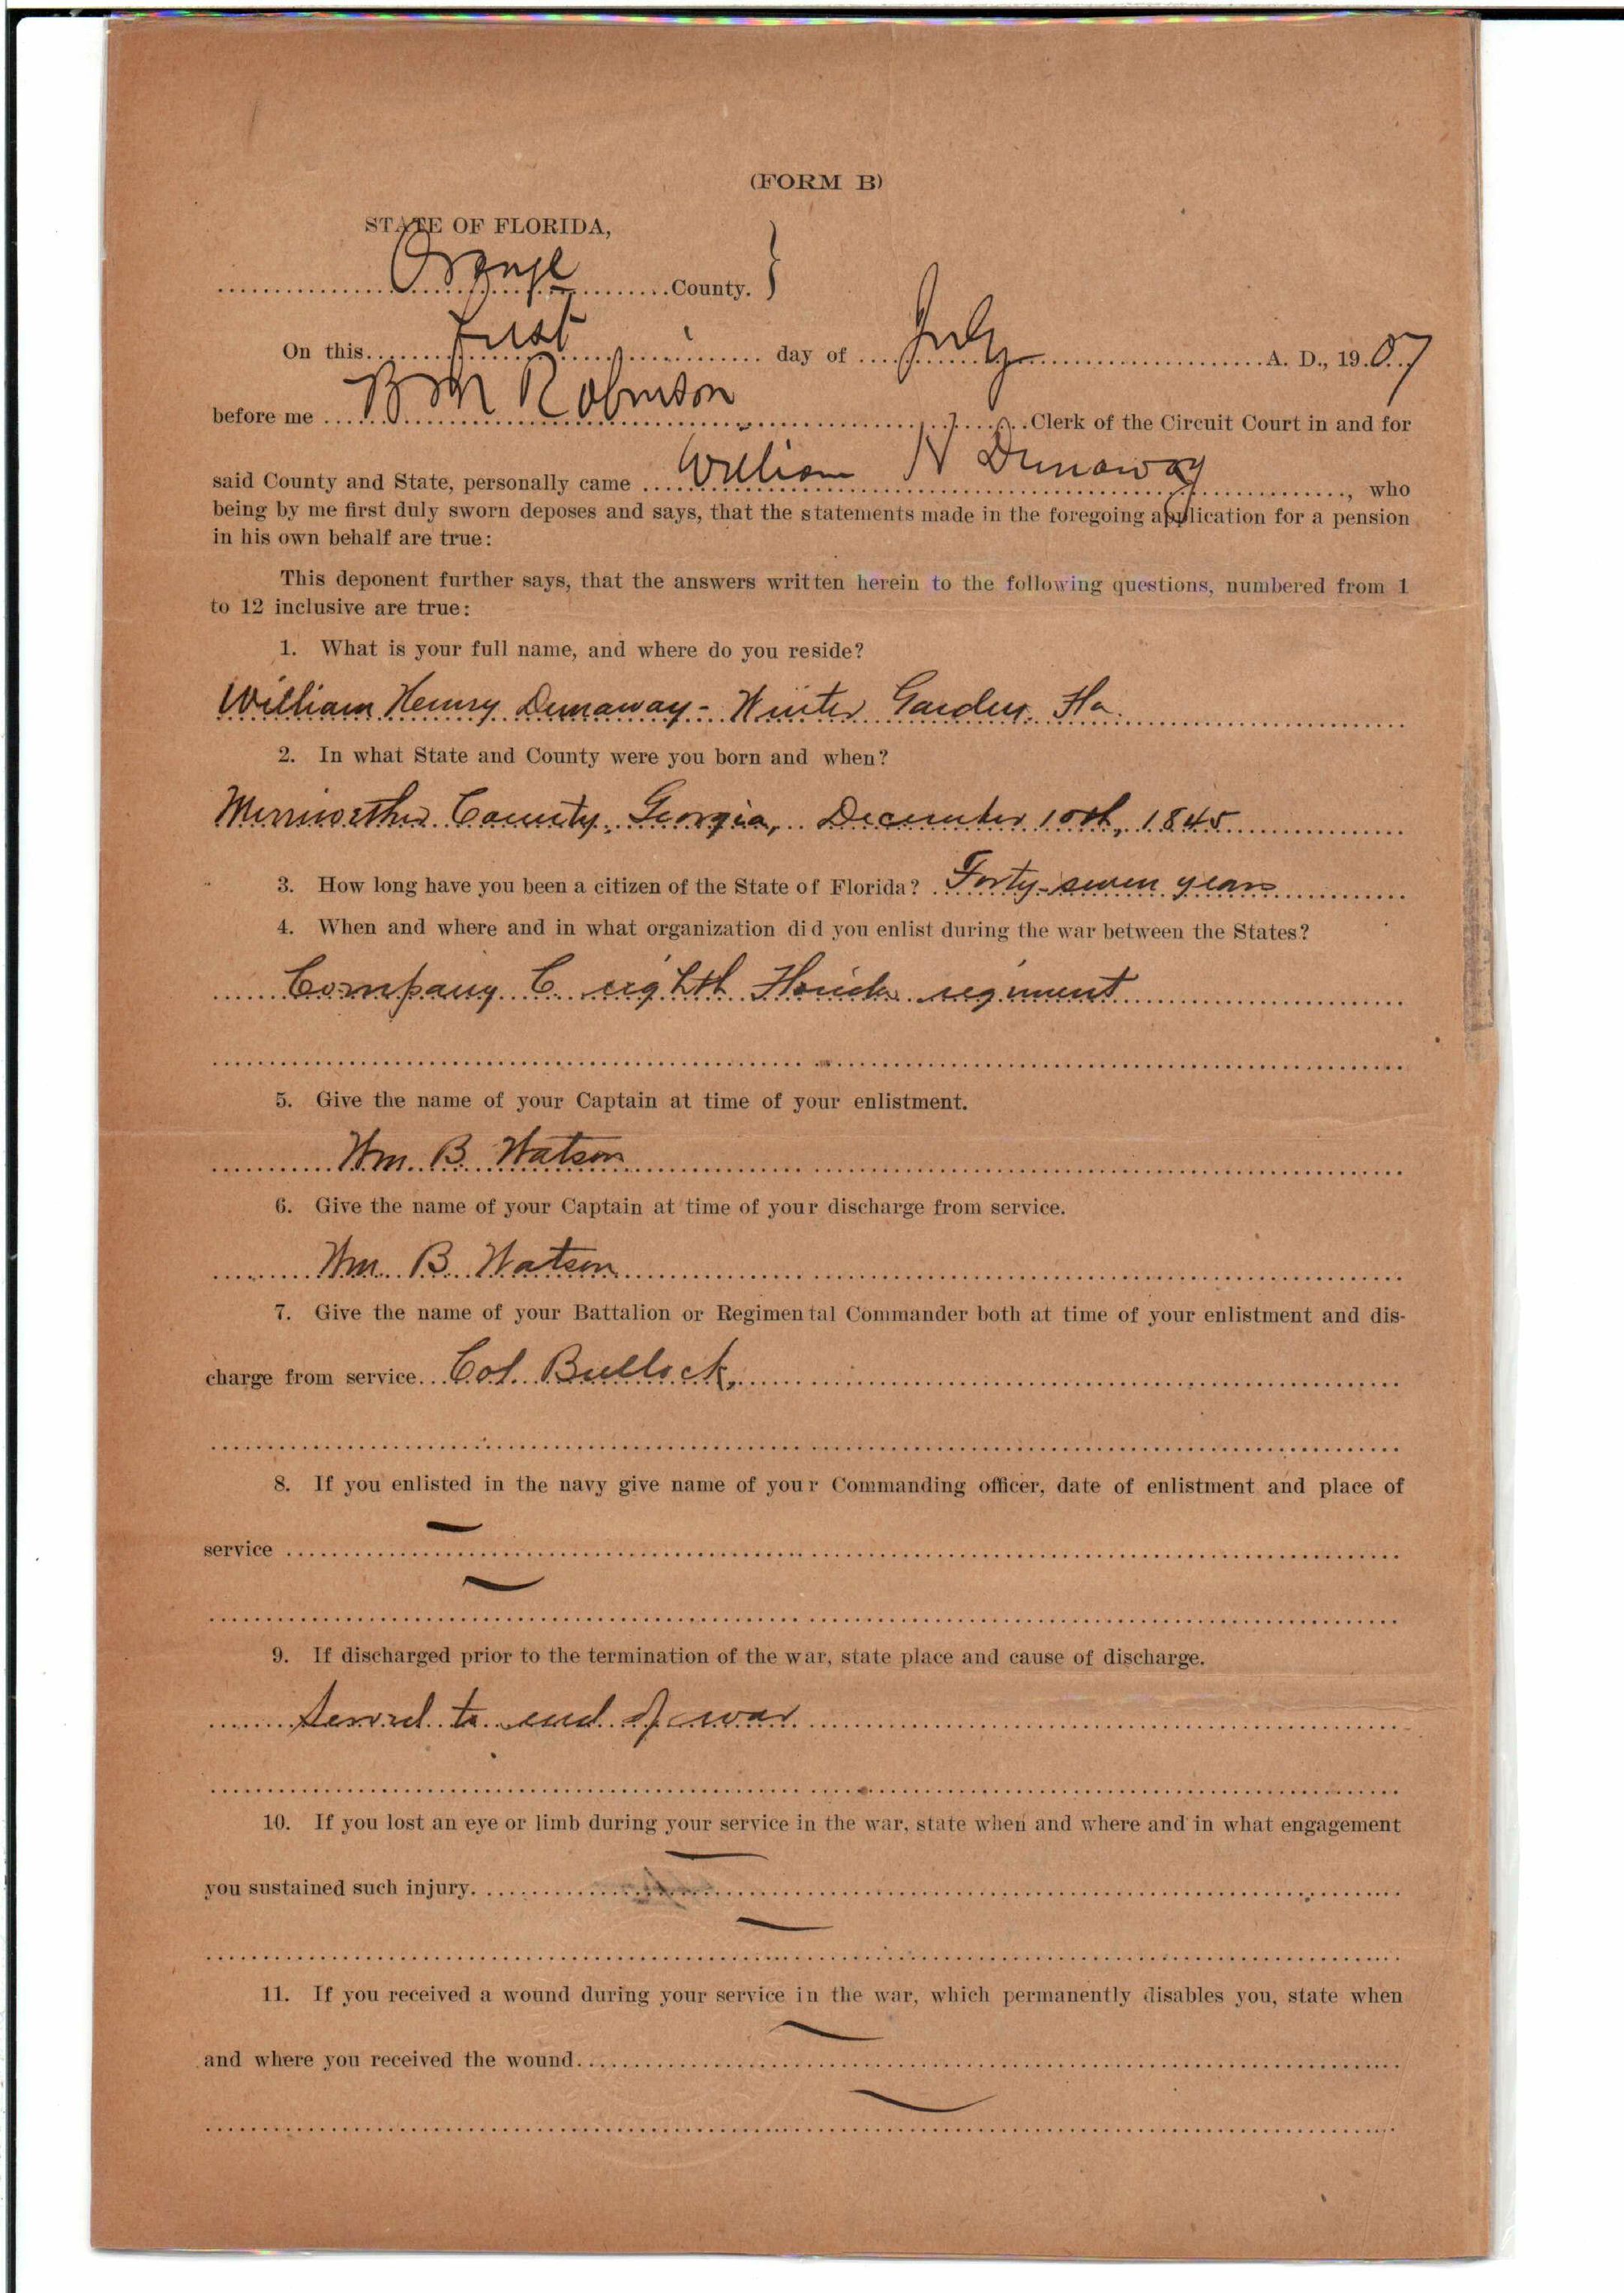 (FORM B)
STATE OF FLORIDA,
Orange County.
On this First day of July A. D., 1907
before me B M Robinson Clerk of the Circuit Court in and for
said County and State, personally came William H Dunaway, who
being by me first duly sworn deposes and says, that the statements made in the foregoing application for a pension
in his own behalf are true:
This deponent further says, that the answers written herein to the following questions, numbered from 1
to 12 inclusive are true:
1. What is your full name, and where do you reside?
William Henry Dunaway - Winter Garden. Fla.
2. In what State and County were you born and when?
Merriwether County, Georgia, December 10th, 1845
3. How long have you been a citizen of the State of Florida? Forty-seven years
4. When and where and in what organization did you enlist during the war between the States?
Company C eighth Florida regiment
5. Give the name of your Captain at time of your enlistment.
Wm. B. Watson
6. Give the name of your Captain at time of your discharge from service.
Wm. B. Watson
7. Give the name of your Battalion or Regimental Commander both at time of your enlistment and dis-
charge from service. Col. Bullock,
8. If you enlisted in the navy give name of your Commanding officer, date of enlistment and place of
service
9. If discharged prior to the termination of the war, state place and cause of discharge.
Served to end of war
10. If you lost an eye or limb during your service in the war, state when and where and in what engagement
you sustained such injury.
11. If you received a wound during your service in the war, which permanently disables you, state when
and where you received the wound.